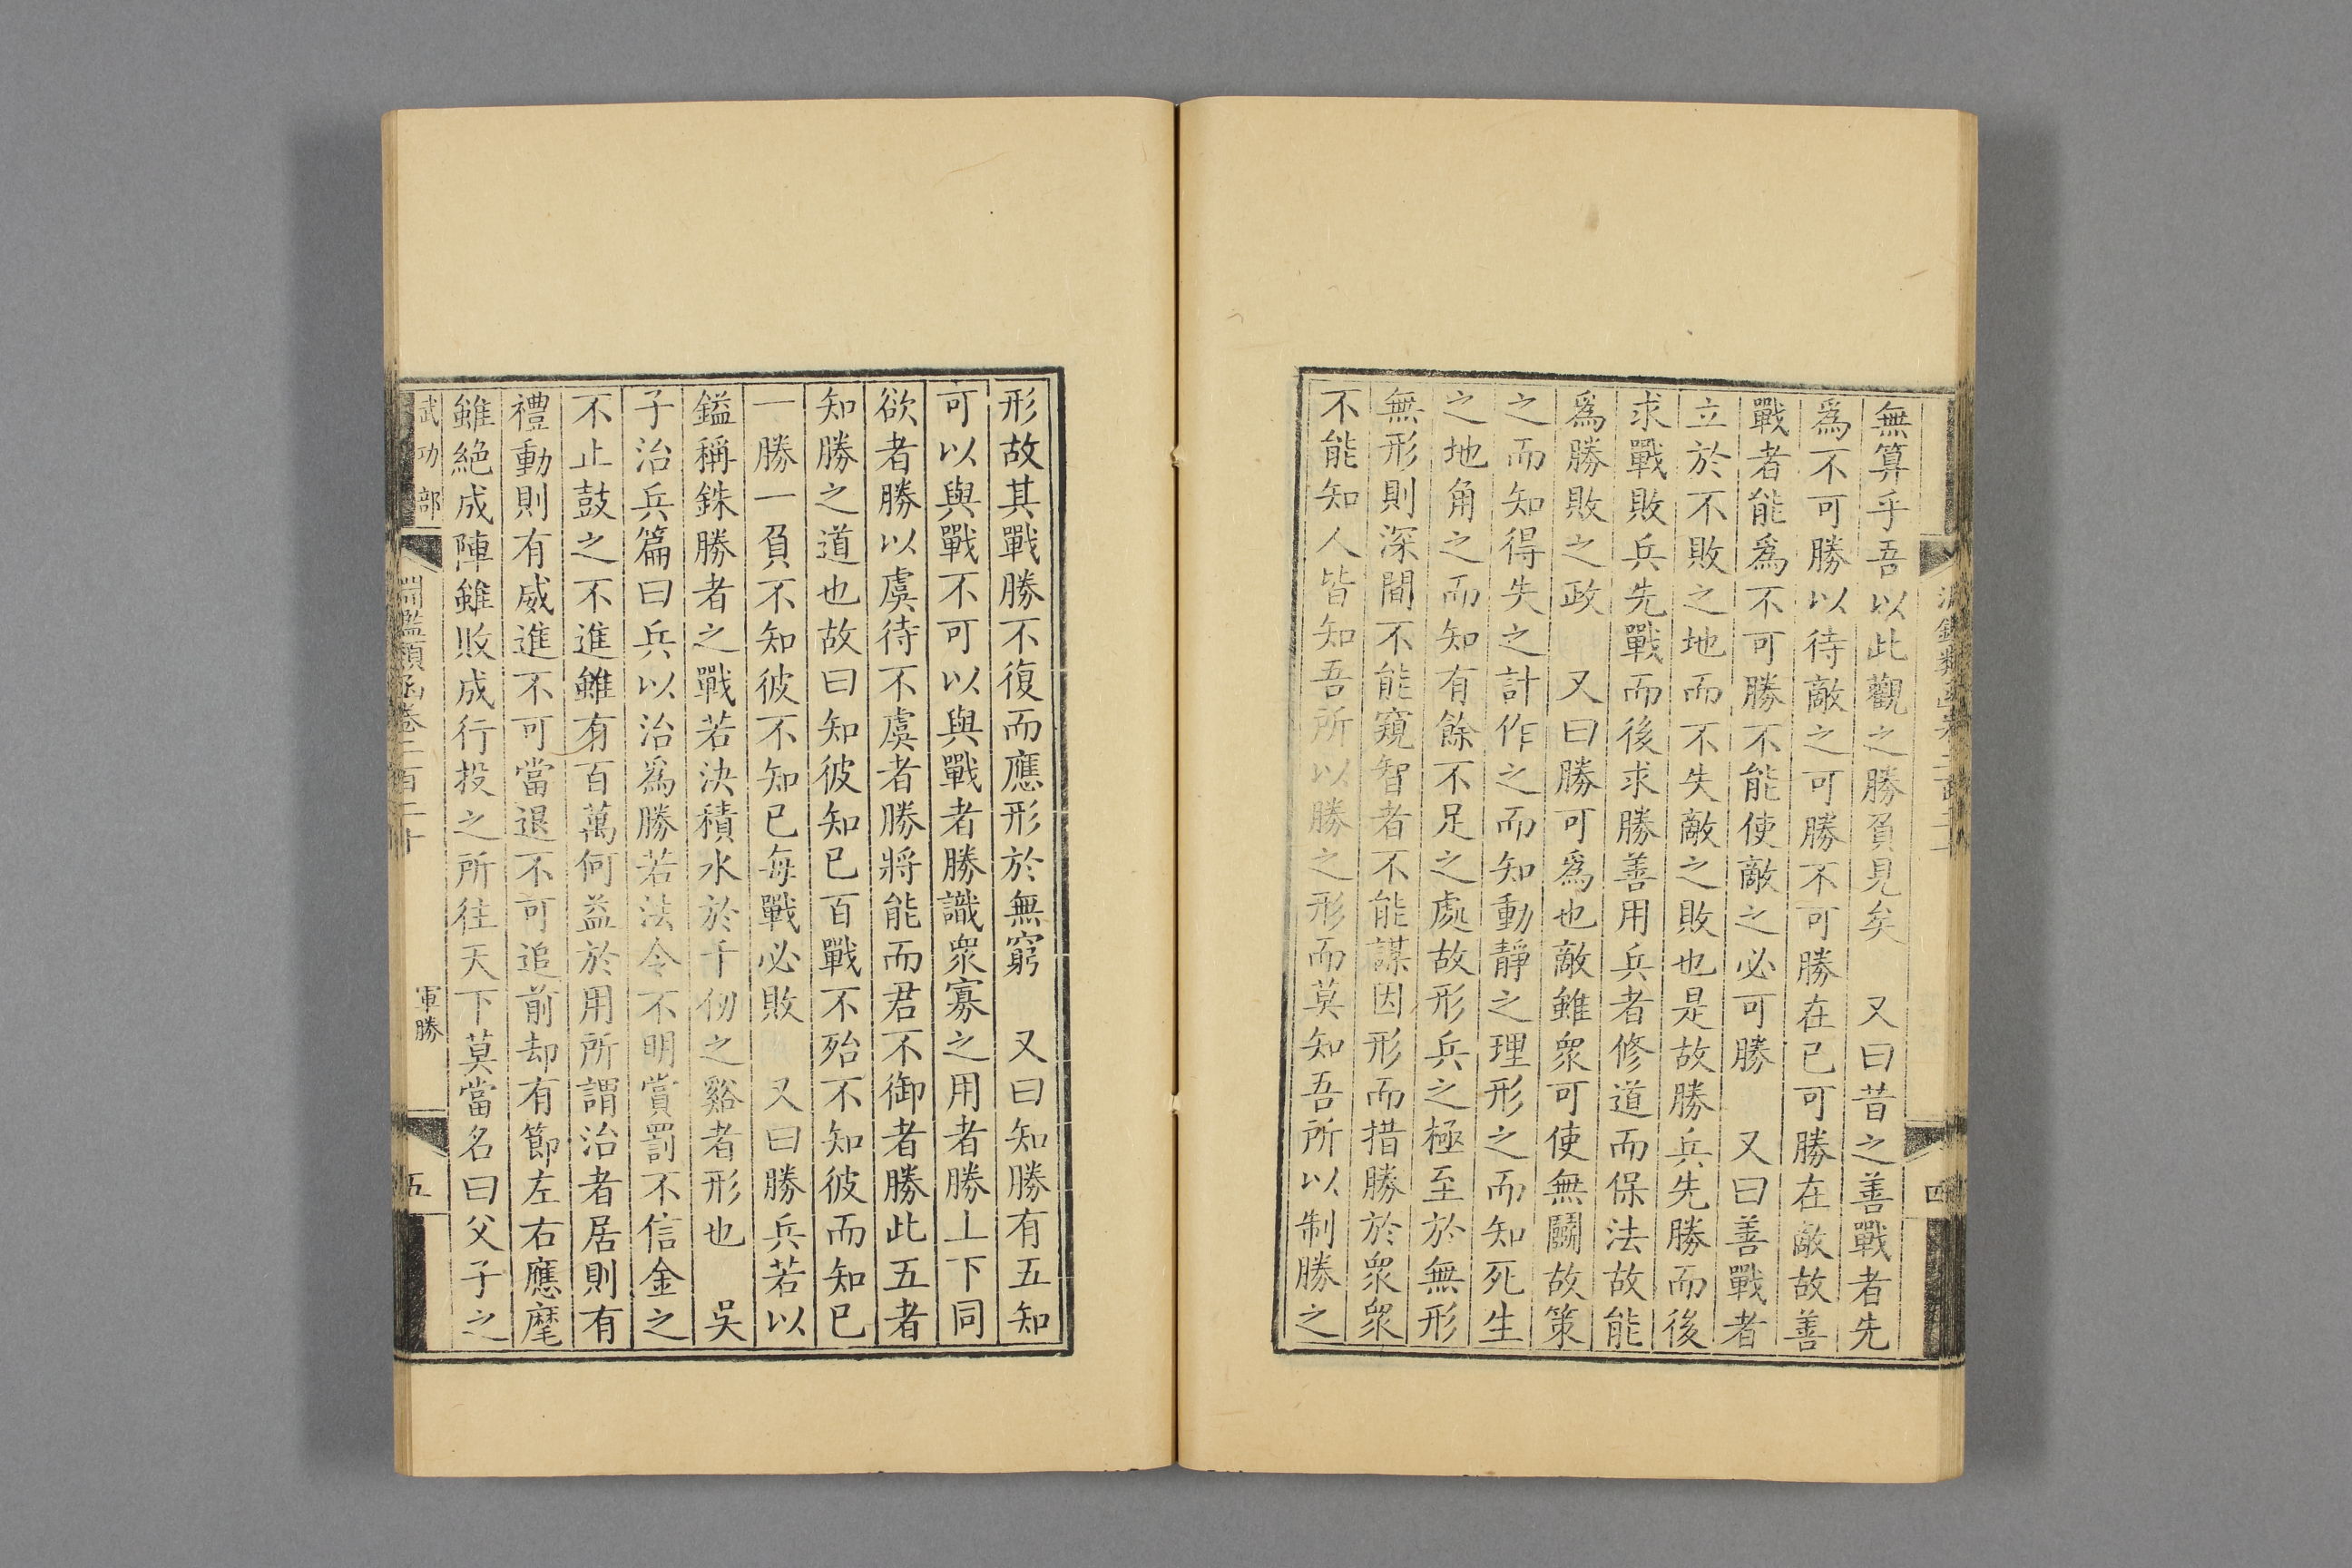 無算乎吾以此觀之勝負見矣　又曰昔之善戰者先
爲不可勝以待敵之可勝不可勝在已可勝在敵故善
戰者能爲不可勝不能使敵之必可勝　又曰善戰者
立於不敗之地而不失敵之敗也是故勝兵先勝而後
求戰敗兵先戰而後求勝善用兵者修道而保法故能
爲勝敗之政　又曰勝可爲也敵雖衆可使無鬭故策
之而知得失之計作之而知動靜之理形之而知死生
之地角之而知有餘不足之處故形兵之極至於無形
無形則深間不能窺智者不能謀因形而措勝於衆衆
不能知人皆知吾所以勝之形而莫知吾所以制勝之
四
形故其戰勝不復而應形於無窮　又曰知勝有五知
可以與戰不可以與戰者勝識衆寡之用者勝上下同
欲者勝以虞待不虞者勝將能而君不御者勝此五者
知勝之道也故曰知彼知已百戰不殆不知彼而知已
一勝一負不知彼不知已每戰必敗　又曰勝兵若以
鎰稱銖勝者之戰若決積水於千仞之谿者形也　吳
子治兵篇曰兵以治爲勝若法令不明賞罰不信金之
不止鼓之不進雖有百萬何益於用所謂治者居則有
禮動則有威進不可當退不可追前却有節左右應麾
雖絕成陣雖敗成行投之所往天下莫當名曰父子之
武功部
淵鑑類函卷二百二十
軍勝
五